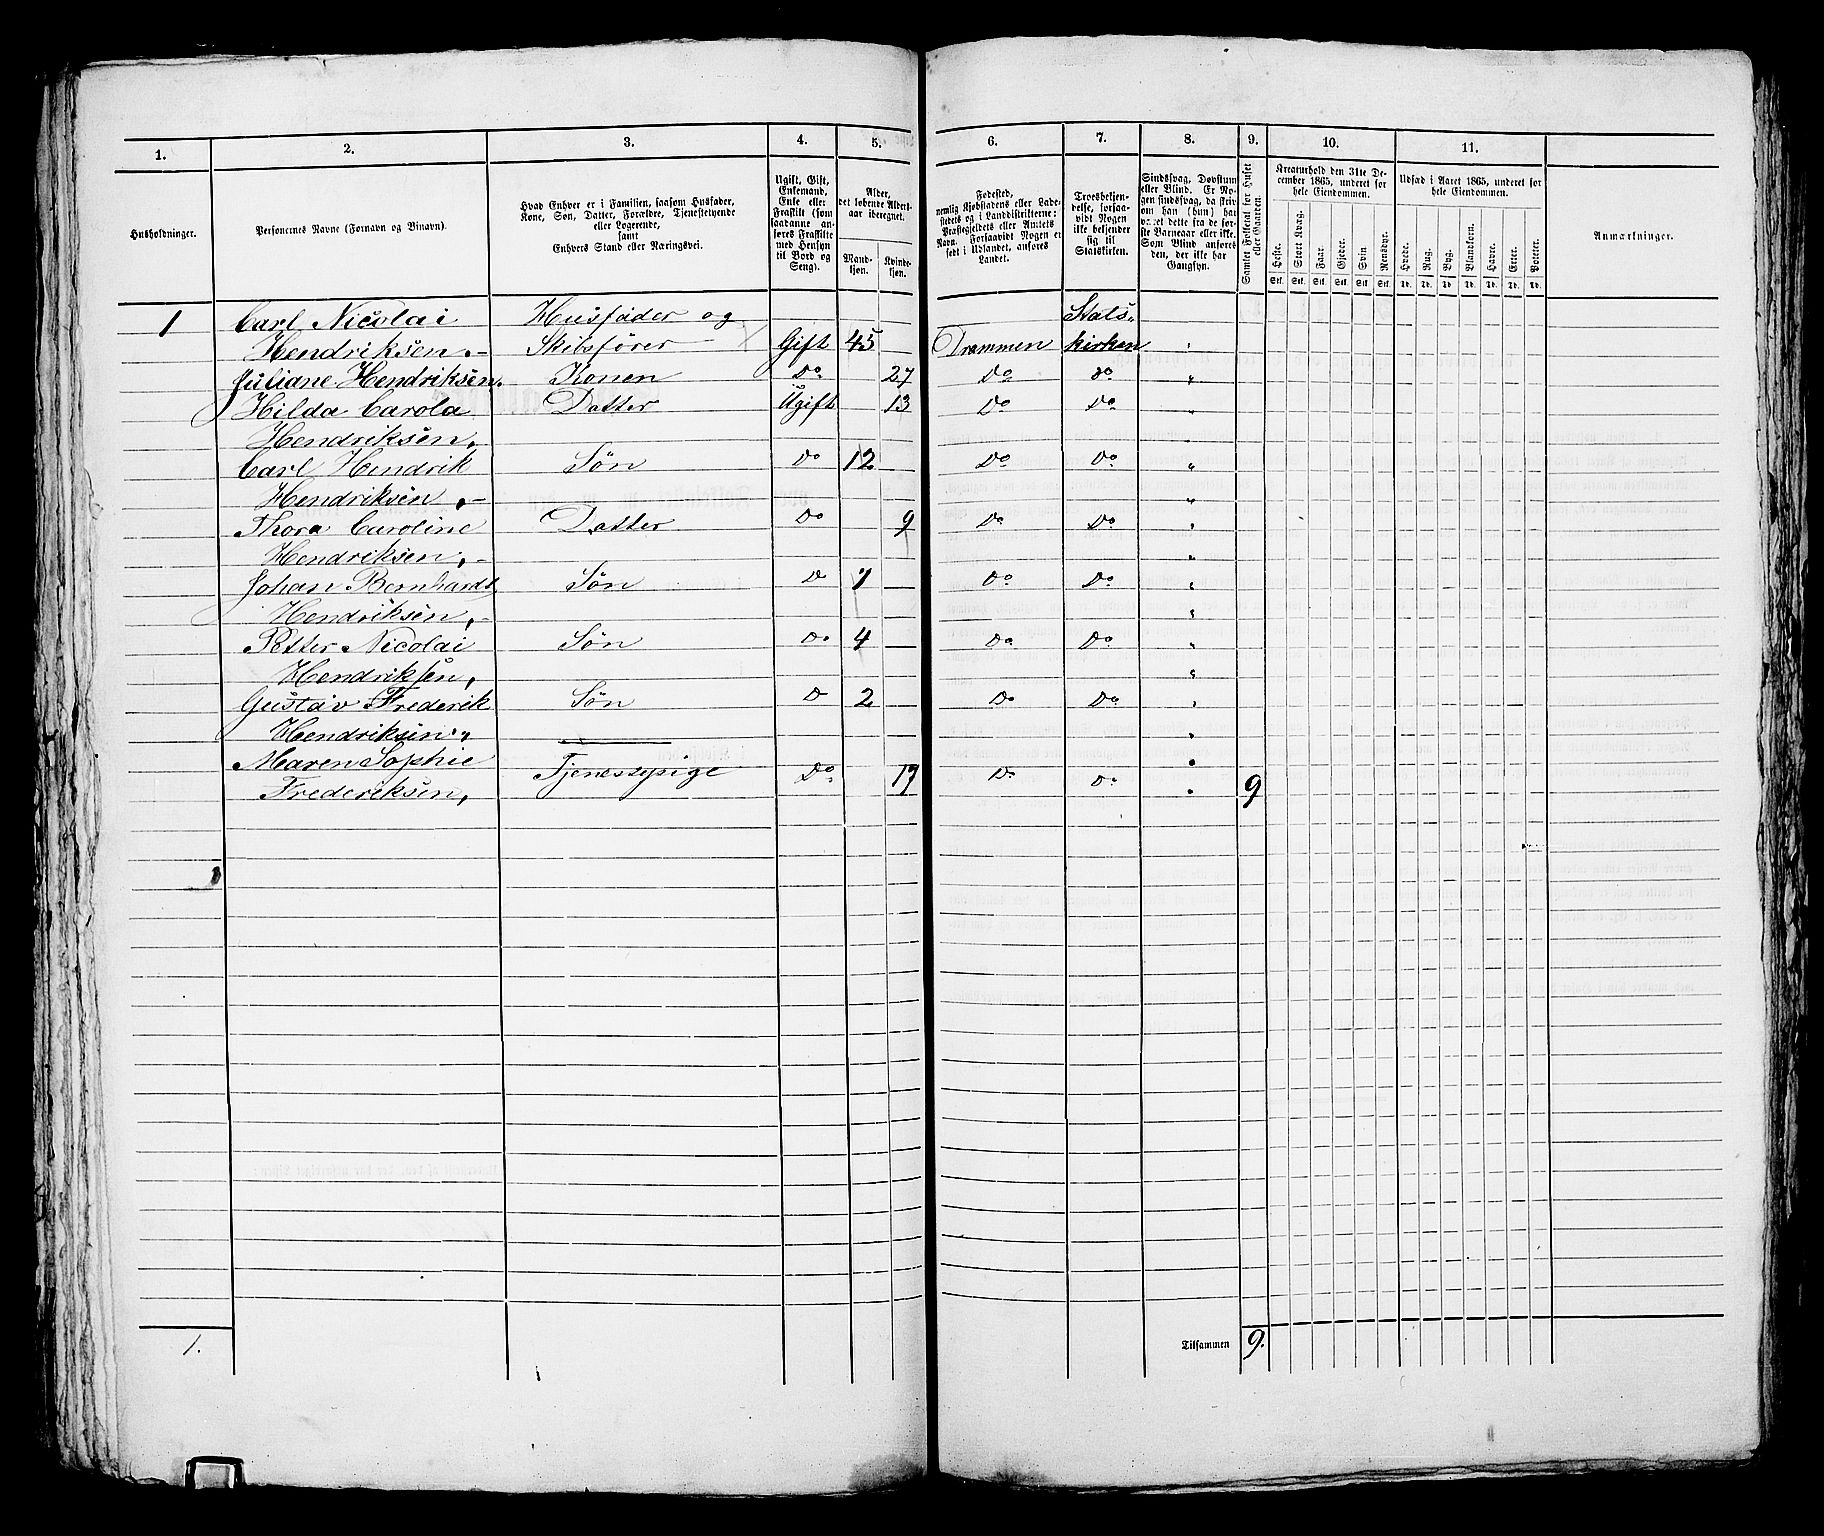 1. 2. 3. 4. 5. 6. 7. 8. 9. 10. 11.
Husholdninger.
Personernes Navne (Fornavn og Binavn).
Hvad Enhver er i Familien, saasom Husfader,
Kone, Søn, Datter, Forældre, Tjenestetyende
eller Logerende,
samt
Enhvers Stand eller Næringsvei.
Ugift, Gift,
Enkemand,
Enke eller
Fraskilt (som
saadanne an-
føres Fraskilte
med Hensyn
til Bord og
Seng).
Alder,
det løbende Alders-
aar iberegnet.
Mand-
kjøn.
Kvinde-
kjøn.
Fødested,
nemlig Kjøbstadens eller Lade-
stedets og i Landdistrikterne:
Præstegjeldets eller Amtets
Navn. Forsaavidt Nogen er
født i Udlandet, anføres
Landet.
Troesbekjen-
delse, forsaa-
vidt Nogen
ikke bekjender
sig til
Statskirken.
Sindssvag, Døvstum
eller Blind. Er No-
gen sindssvag, da skriv
om han (hun) har
været dette fra de før-
ste Barneaar eller ikke.
Som Blind anføres
den, der ikke har
Gangsyn.
Samlet Folketal for Huset
eller Gaarden.
Kreaturhold den 31te De-
cember 1865, underet for
hele Eiendommen.
Heste. Stort Kvæg. Faar. Gjeder. Svin. Rensdyr.
Stk. Stk. Stk. Stk. Stk. Stk.
Udsæd i Aaret 1865, underet for
hele Eiendommen.
Hvede. Rug. Byg. Blandkorn. Havre. Erter. Poteter.
Td. Td. Td. Td. Td. Td. Td.
Anmærkninger.
1 Carl Nicolai Husfader og Stats-
Hendriksen. Skibsfører Gift 45 Drammen kirken
Juliane Hendriksen. Konen Do 27 Do do
Hilda Carola Datter Ugift 13 Do Do
Hendriksen,
Carl Hendrik Søn Do 12 Do Do
Hendriksen,
Thora Caroline Datter Do 9 Do Do
Hendriksen,
Johan Bernhardt Søn Do 7 Do Do
Hendriksen,
Petter Nicolai Søn Do 4 Do Do
Hendriksen,
Gustav Frederik Søn Do 2 Do Do
Hendriksen,
Maren Sophie
Frederiksen, Tjenestepige Do 19 Do Do 9
1. Tilsammen 9.